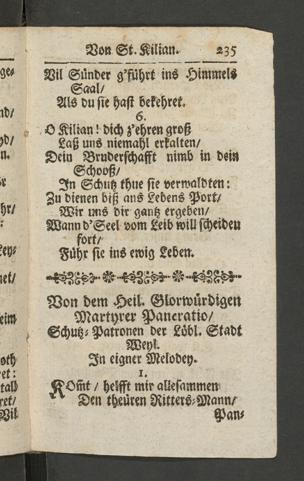 Von St. Kilian. 235
Vil Sünder g'führt ins Himmels
Saal/
Als du sie hast bekehret.
6.
O Kilian! dich z'ehren groß
Laß uns niemahl erkalten/
Dein Bruderschafft nimb in dein
Schooß/
In Schutz thue sie verwaldten:
Zu dienen biß ans Lebens Port/
Wir uns dir gantz ergeben/
Wann d'Seel vom Leib will scheiden
fort/
Führ sie ins ewig Leben.
Von dem Heil. Glorwürdigen
Martyrer Pancratio/
Schutz-Patronen der Löbl. Stadt
Weyl.
In eigner Melodey.
1.
Kom̃t / helfft mir allesammen
Den theüren Ritters-Mann/
Pan-